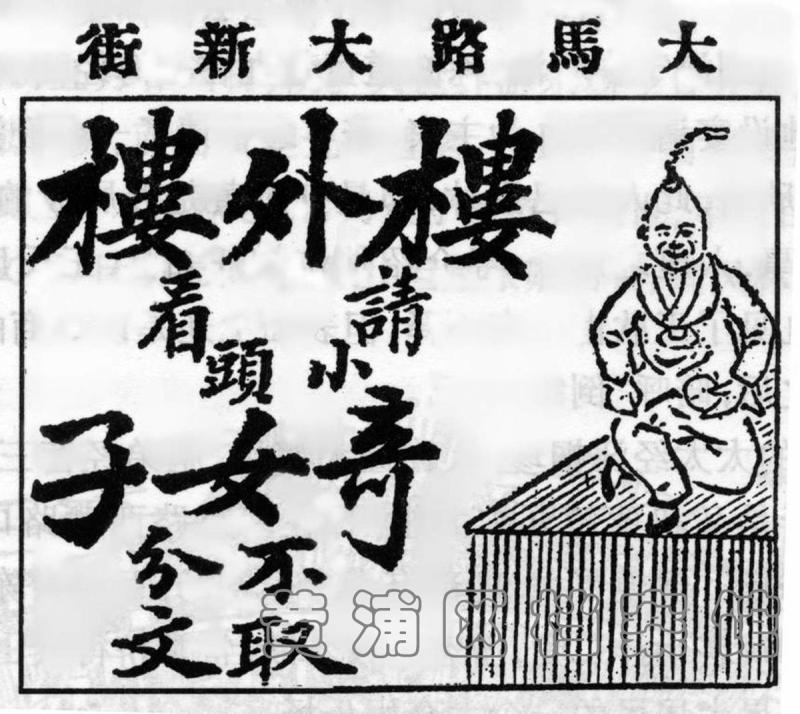 大馬路大新街
樓外樓
請看
小頭
奇女子
不取
分文
黄浦区档案馆